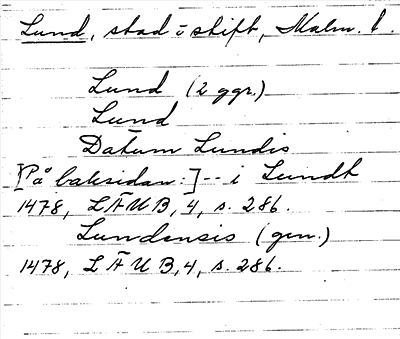 Lund, stad i stift, Malm. l.
Lund (2 ggr.)
Lund
Datum Lundis
[På baksidan:] -- i Lundt
1478, LÄUB, 4, s. 286.
Lundensis (gen.)
1478, LÄUB, 4, s. 286.